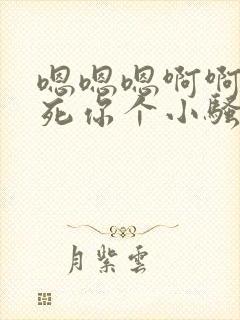 嗯嗯嗯啊啊
死你个小骚
月紫云